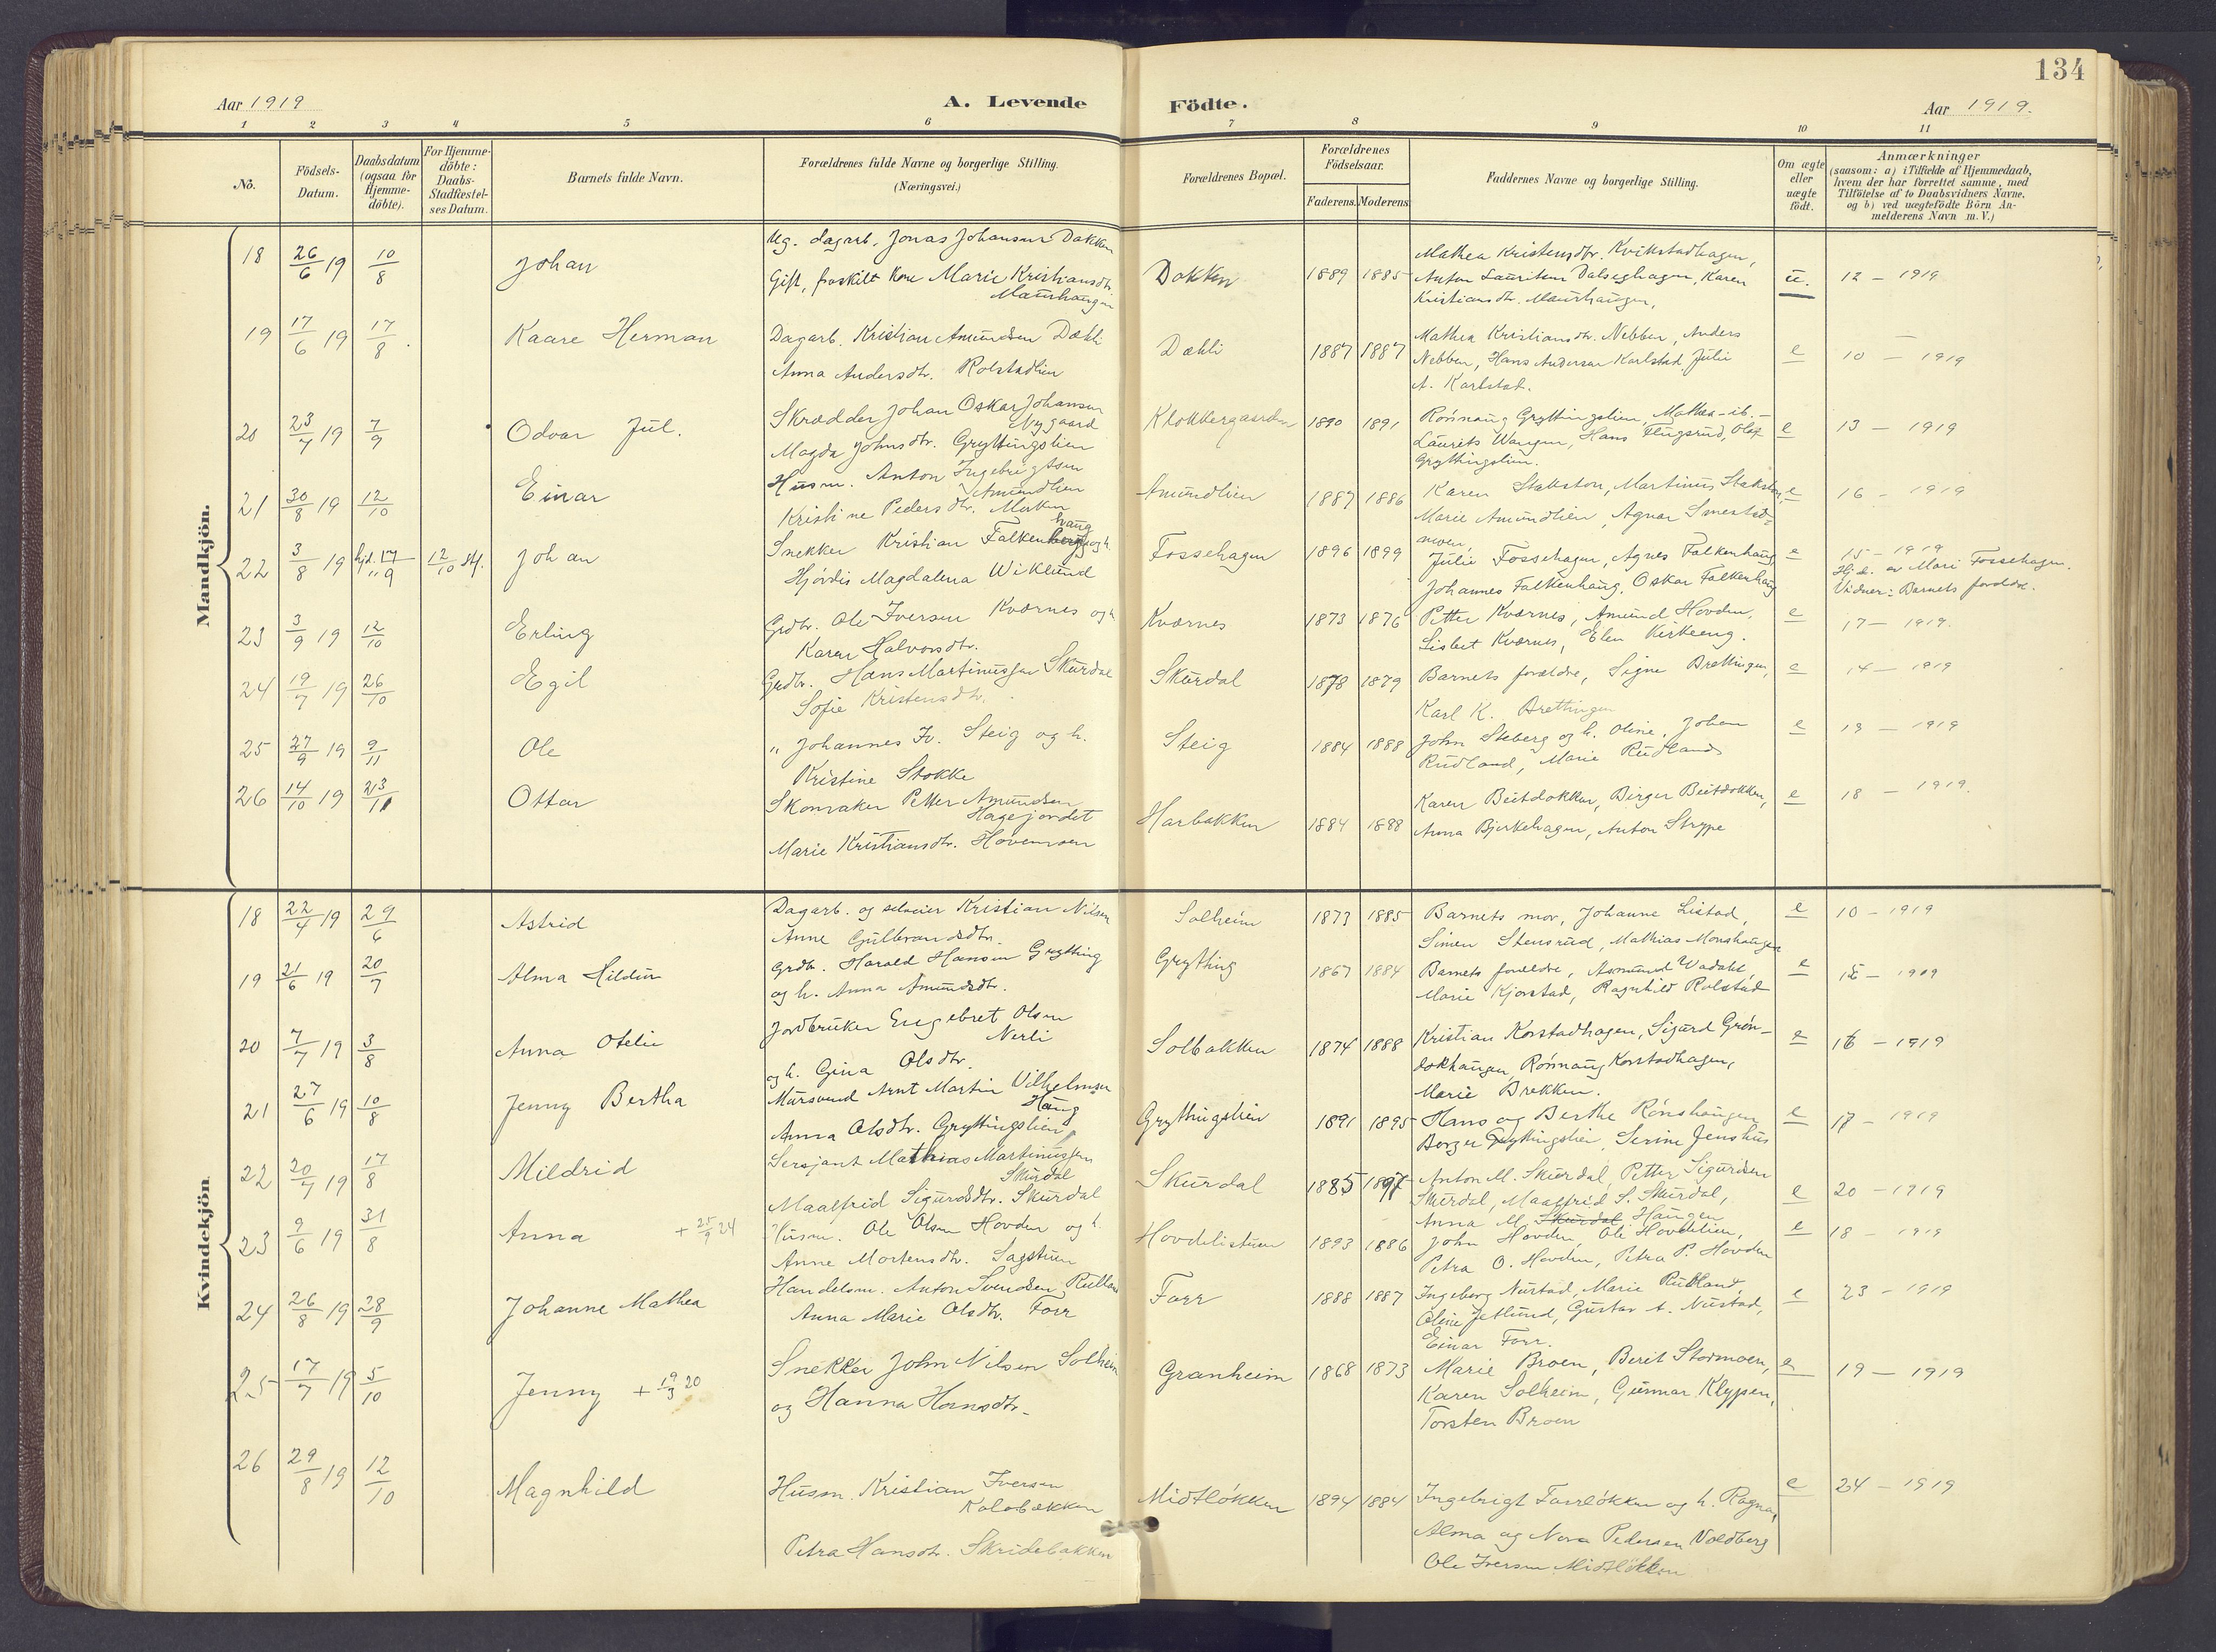 134
Aar 1919
A. Levende Födte.
Aar 1919.
1 2 3 4 5 6 7 8 9 10 11
No. Födsels-Datum. Daabsdatum (ogsaa for Hjemme-döbte). For Hjemme-döbte: Daabs-Stadfæstel-ses Datum. Barnets fulde Navn. Forældrenes fulde Navne og borgerlige Stilling. (Næringsvei.) Forældrenes Bopæl. Forældrenes Födselsaar. Faderens. Moderens. Faddernes Navne og borgerlige Stilling. Om ægte eller uægte födt. Anmærkninger (saasom: a) i Tilfælde af Hjemmedaab, hvem der har forrettet samme, med Tilföielse af to Daabsvidners Navne, og b) ved uægtefödte Börn An-melderens Navn m.V.)
Mandkjön.
18 26/6 19 10/8 Johan
Ug. dagarb. Jonas Johansen Dokken
Gift, fraskilt Kone Marie Kristiansdtr.
Maurhaugen
Dokken 1889 1885
Mathea Kristensdtr. Kvikstadhagen,
Anton Lauritsen Dalseghagen, Karen
Kristiansdtr. Maurhaugen,
u. 12 - 1919
19 17/6 19 17/8. Kaare Herman
Dagarb. Kristian Amundsen Dæhli
Anna Andersdtr. Rolstadlien
Dæhli 1887 1887
Mathea Kristiansdtr. Nebben, Anders
Nebben, Hans Andersen Karlstad, Julie
A. Karlstad.
e 10 - 1919
20 23/7 19 7/9 Odvar Jul.
Skrædder Johan Oskar Johansen
Nygaard
Magda Johnsdtr. Gryttingslien
Klokkergaarden 1890 1891
Rønnaug Gryttingslien, Mathea - ib. -
Laurits Wangen, Hans Flugsrud, Olaf
Gryttingslien.
e 13 - 1919
21 30/8 19 12/10 Einar
Husm. Anton Ingebrigtsen
Amundlien
Kristine Pedersdtr. Moken
Amundlien 1887 1886
Karen Stakston, Martinus Stakston,
Marie Amundlien, Agnar Smestad-
moen
e 16 - 1919
22 3/8 19 hjd. 17/9 12/10 stf. Johan
Snekker Kristian Falkenhaug og h.
Hjördis Magdalena Wiklund
Fossehagen 1896 1899
Julie Fossehagen, Agnes Falkenhaug,
Johannes Falkenhaug, Oskar Falkenhaug
e 15 - 1919
Hj.d. av Mari Fossehagen.
Vidner: Barnets foreldre.
23 3/9 19 12/10 Erling
Grdbr. Ole Iversen Kværnes og h.
Karen Halvorsdtr.
Kværnes 1873 1876
Petter Kværnes, Amund Hovden,
Lisbet Kværnes, Elen Kirkeeng.
e 17 - 1919.
24 19/7 19 26/10 Egil
Grdbr. Hans Martinussen Skurdal
Sofie Kristensdtr.
Skurdal 1878 1879
Barnets forældre, Signe Brettingen,
Karl K. Brettingen
e 14 - 1919
25 27/9 19 9/11 Ole
" Johannes Iv. Steig og h.
Kristine Stokke
Steig 1884 1888
John Steberg og h. Oline, Johan
Rudland, Marie Rudland
e 19 - 1919
26 14/10 19 23/11 Ottar
Skomaker Petter Amundsen
Hagejordet
Marie Kristiansdtr. Hovemoen
Harbakken 1884 1888
Karen Beitdokken, Birger Beitdokken,
Anna Bjerkehagen, Anton Strype
e 18 - 1919.
Kvindekjön
18 22/4 19 29/6 Astrid
Dagarb. og selveier Kristian Nilsen
Anne Gulbrandsdtr.
Solheim 1873 1885
Barnets mor, Johanne Listad,
Simen Stensrud, Mathias Monshaugen
e 10 - 1919
19 21/6 19 20/7 Alma Hildur
Grdbr. Harald Hansen Grytting
og h. Anna Amundsdtr.
Grytting 1867 1884
Barnets foreldre, Asmund Wadahl,
Marie Kjorstad, Ragnhild Rolstad
e 15 - 1919
20 7/7 19 3/8 Anna Otelie
Jordbruker Engebret Olsen
Nerli
og h. Gina Olsdtr.
Solbakken 1874 1888
Kristian Korstadhagen, Sigurd Grøn-
dokhaugen, Rønnaug Korstadhagen,
Marie Brekken.
e 16 - 1919
21 27/6 19 10/8 Jenny Bertha
Mursvend Arnt Martin Vilhelmsen
Haug
Anna Olsdtr. Gryttingslien
Gryttingslien 1891 1895
Hans og Berthe Rønshaugen
Borger Gryttingslien, Serine Jenshus
e 17 - 1919
22 20/7 19 17/8 Mildrid
Sersjant Mathias Martinussen
Skurdal
Maalfrid Sigurdsdtr. Skurdal
Skurdal 1885 1897
Anton M. Skurdal, Petter Sigurdsen
Skurdal, Maalfrid S. Skurdal,
Anna M. Skurdal Haugen
e 20 - 1919
23 9/6 19 31/8 Anna + 25/9 24
Husm. Ole Olsen Hovden og h.
Anne Mortensdtr. Sagstuen
Hovdelistuen 1893 1886
John Hovden, Ole Hovdelien,
Petra O. Hovden, Petra P. Hovden
e 18 - 1919
24 26/8 19 28/9 Johanne Mathea
Handelsm. Anton Svendsen Rulland
Anna Marie Olsdtr. Forr
Forr 1888 1887
Ingeborg Nustad, Marie Rudland,
Oline Jetlund, Gustav A. Nustad,
Einar Forr.
e 23 - 1919
25 17/7 19 5/10 Jenny + 19/3 20
Snekker John Nilsen Solheim
og Hanna Hansdtr.
Granheim 1868 1873
Marie Broen, Berit Stormoen,
Karen Solheim, Gunnar Klypen,
Torsten Broen
e 19 - 1919
26 29/8 19 12/10 Magnhild
Husm. Kristian Iversen
Kolobækken
Petra Hansdtr. Skridebakken
Midtløkken 1894 1884
Ingebrigt Forrløkken og h. Ragna,
Alma og Nora Pedersen Voldberg
Ole Iversen Midtløkken
e 24 - 1919